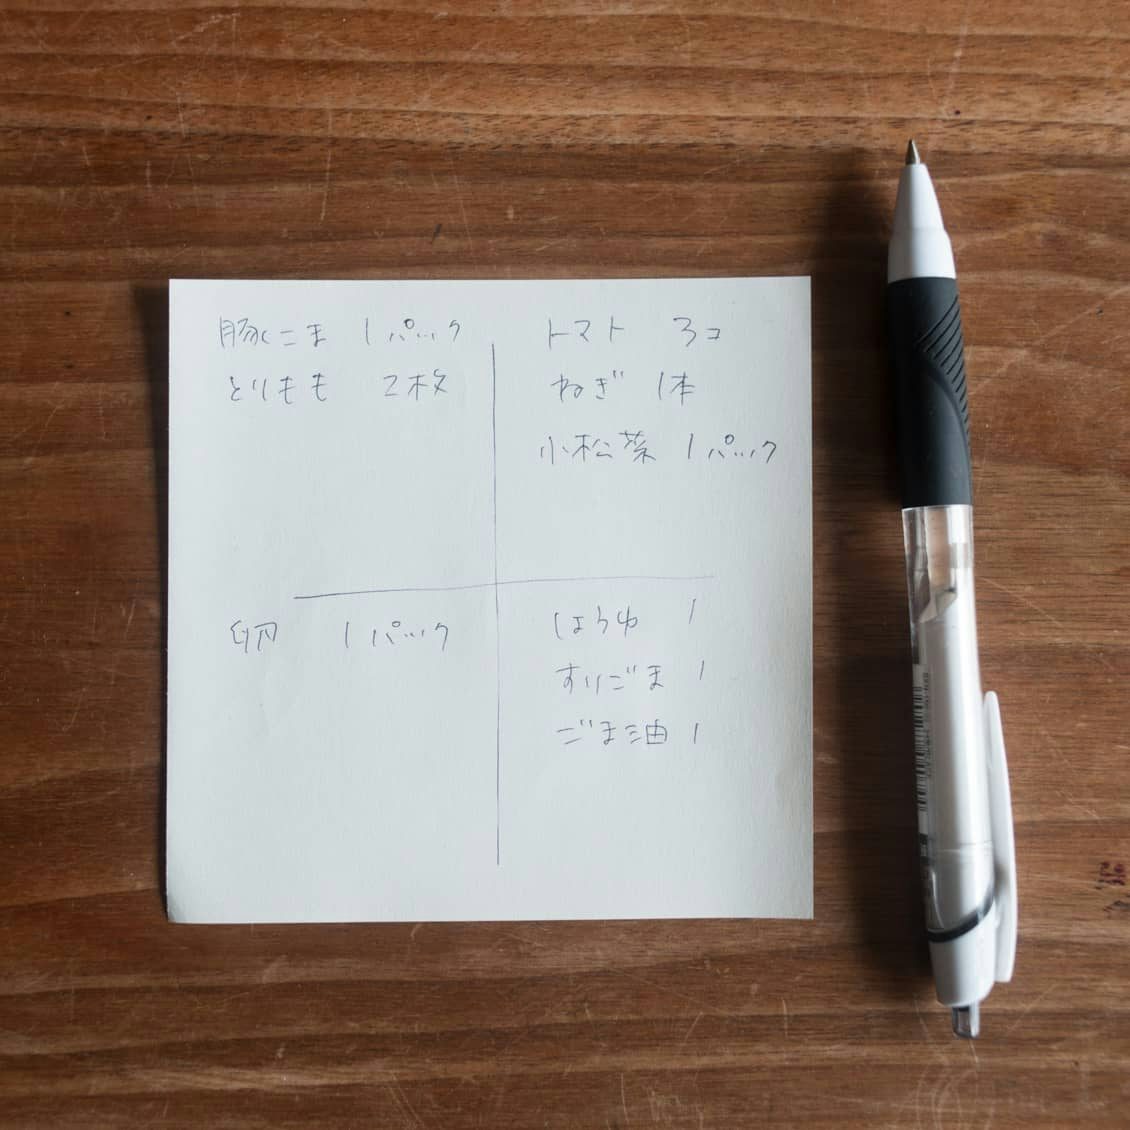 豚こま 1パック
とりもも 2枚
トマト 3コ
ねぎ 1本
小松菜 1パック
卵 1パック
しょうゆ 1
すりごま 1
ごま油 1